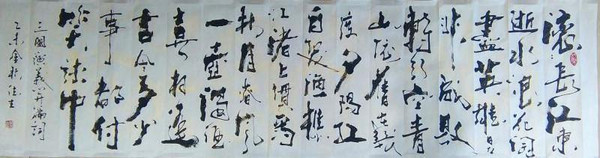 滚长江東
逝水浪花淘
盡英雄是
非成敗
轉頭空青
山依舊在幾
度夕陽紅
白髮漁樵
江渚上慣看
秋月春風
一壺濁酒
喜相逢
古今多少
事都付
笑談中
三國演義开篇詞
乙未金秋